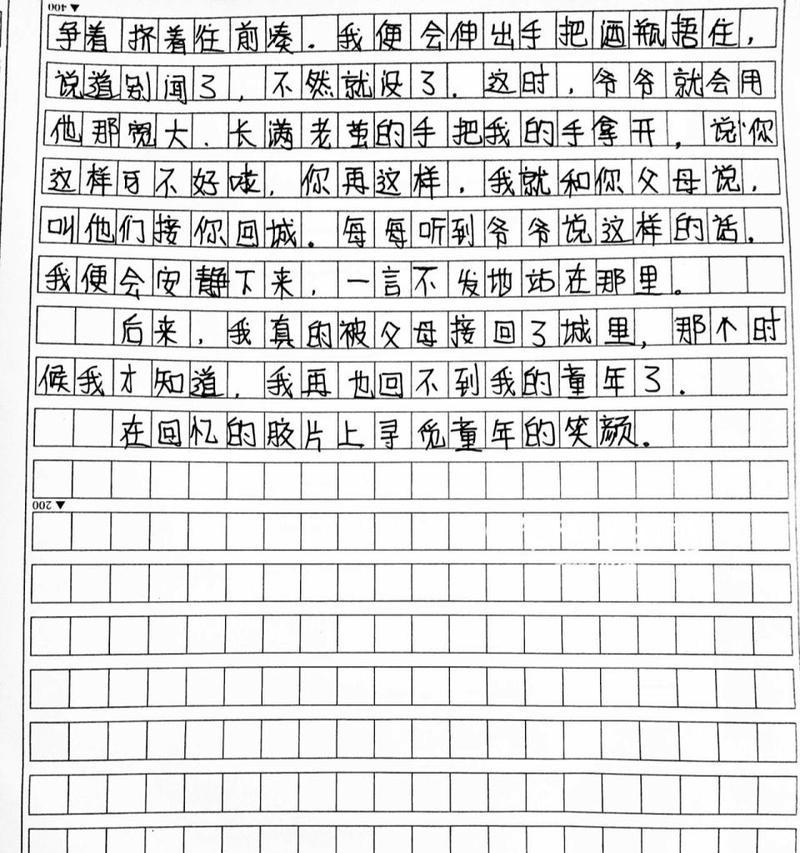 400 ▼
争着挤着往前凑.我便会伸出手把酒瓶捂住,
说道别闻了,不然就没了.这时,爷爷就会用
他那宽大、长满老茧的手把我的手拿开,说你
这样可不好啦,你再这样,我就和你父母说,
叫他们接你回城。每每听到爷爷说这样的话,
我便会安静下来,一言不发地站在那里。
后来,我真的被父母接回了城里,那个时
候我才知道,我再也回不到我的童年了.
在回忆的胶片上寻觅童年的笑颜.
200 ▼